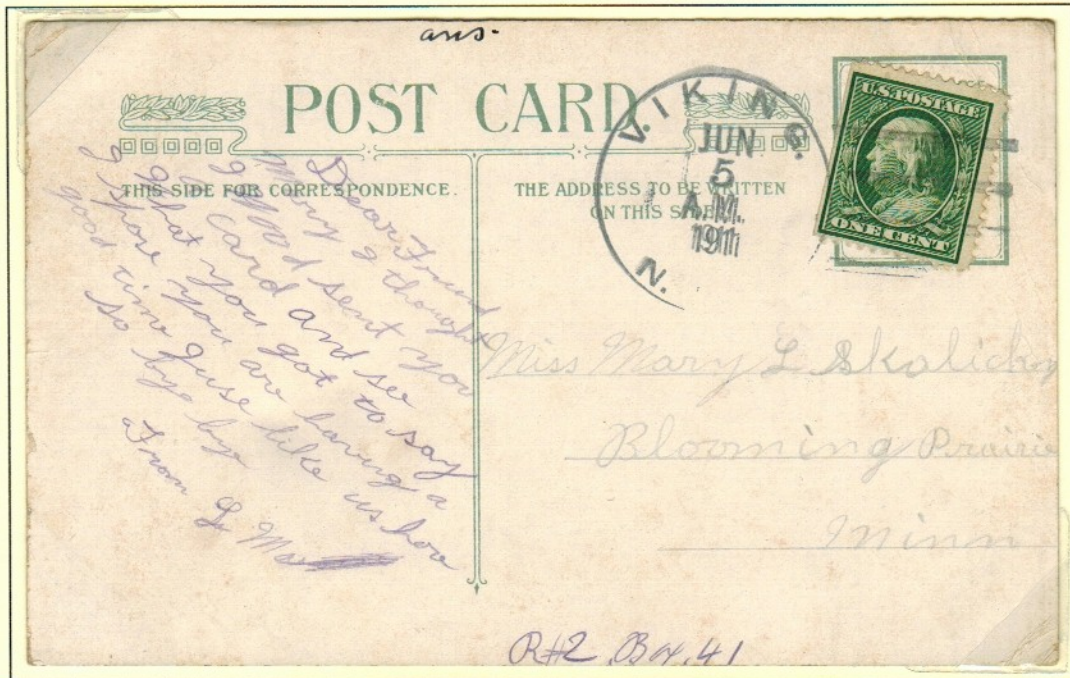 ans.
POST CARD
THIS SIDE FOR CORRESPONDENCE.
THE ADDRESS TO BE WRITTEN
ON THIS SIDE
VIKING
JUN
5
A.M.
1911
N.
U.S. POSTAGE
ONE CENT
Dear Friend
Mary I thought
I sent you
a card and see
what you got to say
I spose you are having a
good time juse like us here
so bye by
From L
Miss Mary L Skalicky
Blooming Prairie
Minn
R#2, Box, 41